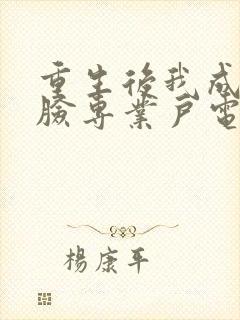 重生後我成
臉專業戶電
楊康平